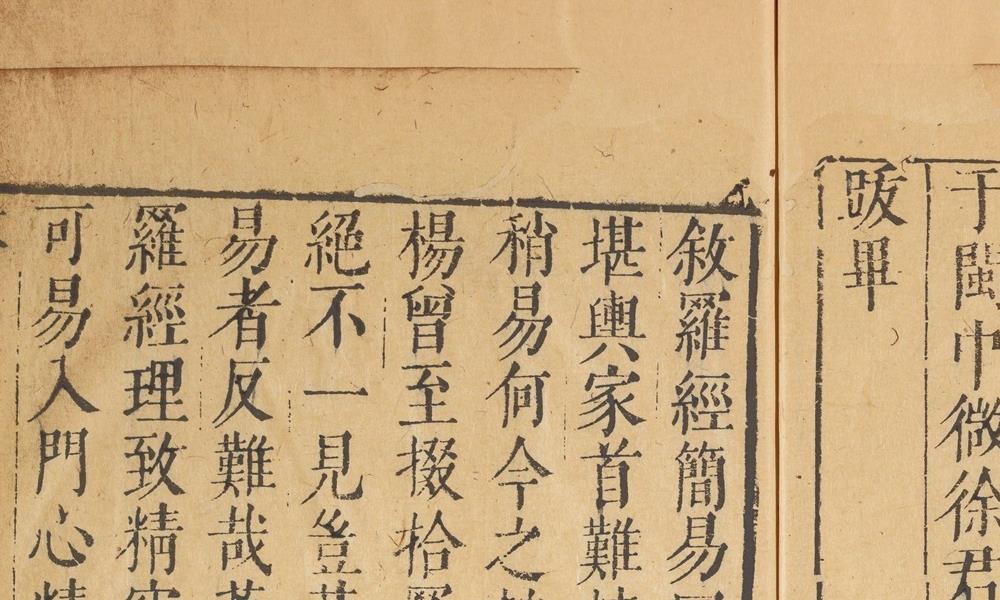 于閩中微徐君
跋畢
敘羅經簡易
堪輿家首難
稍易何今之
楊曾至掇拾
絕不一見豈
易者反難哉
羅經理致精
可易入門心精